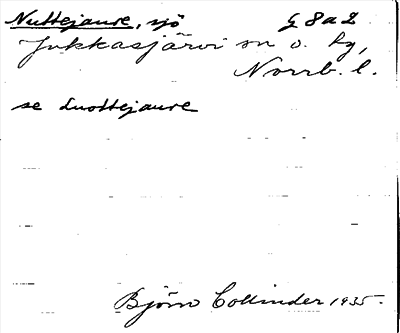 Nuttejaure, sjö § 8a2
Jukkasjärvi sn o. lg,
Norrb. l.
se Luottejaure
Björn Collinder 1935.